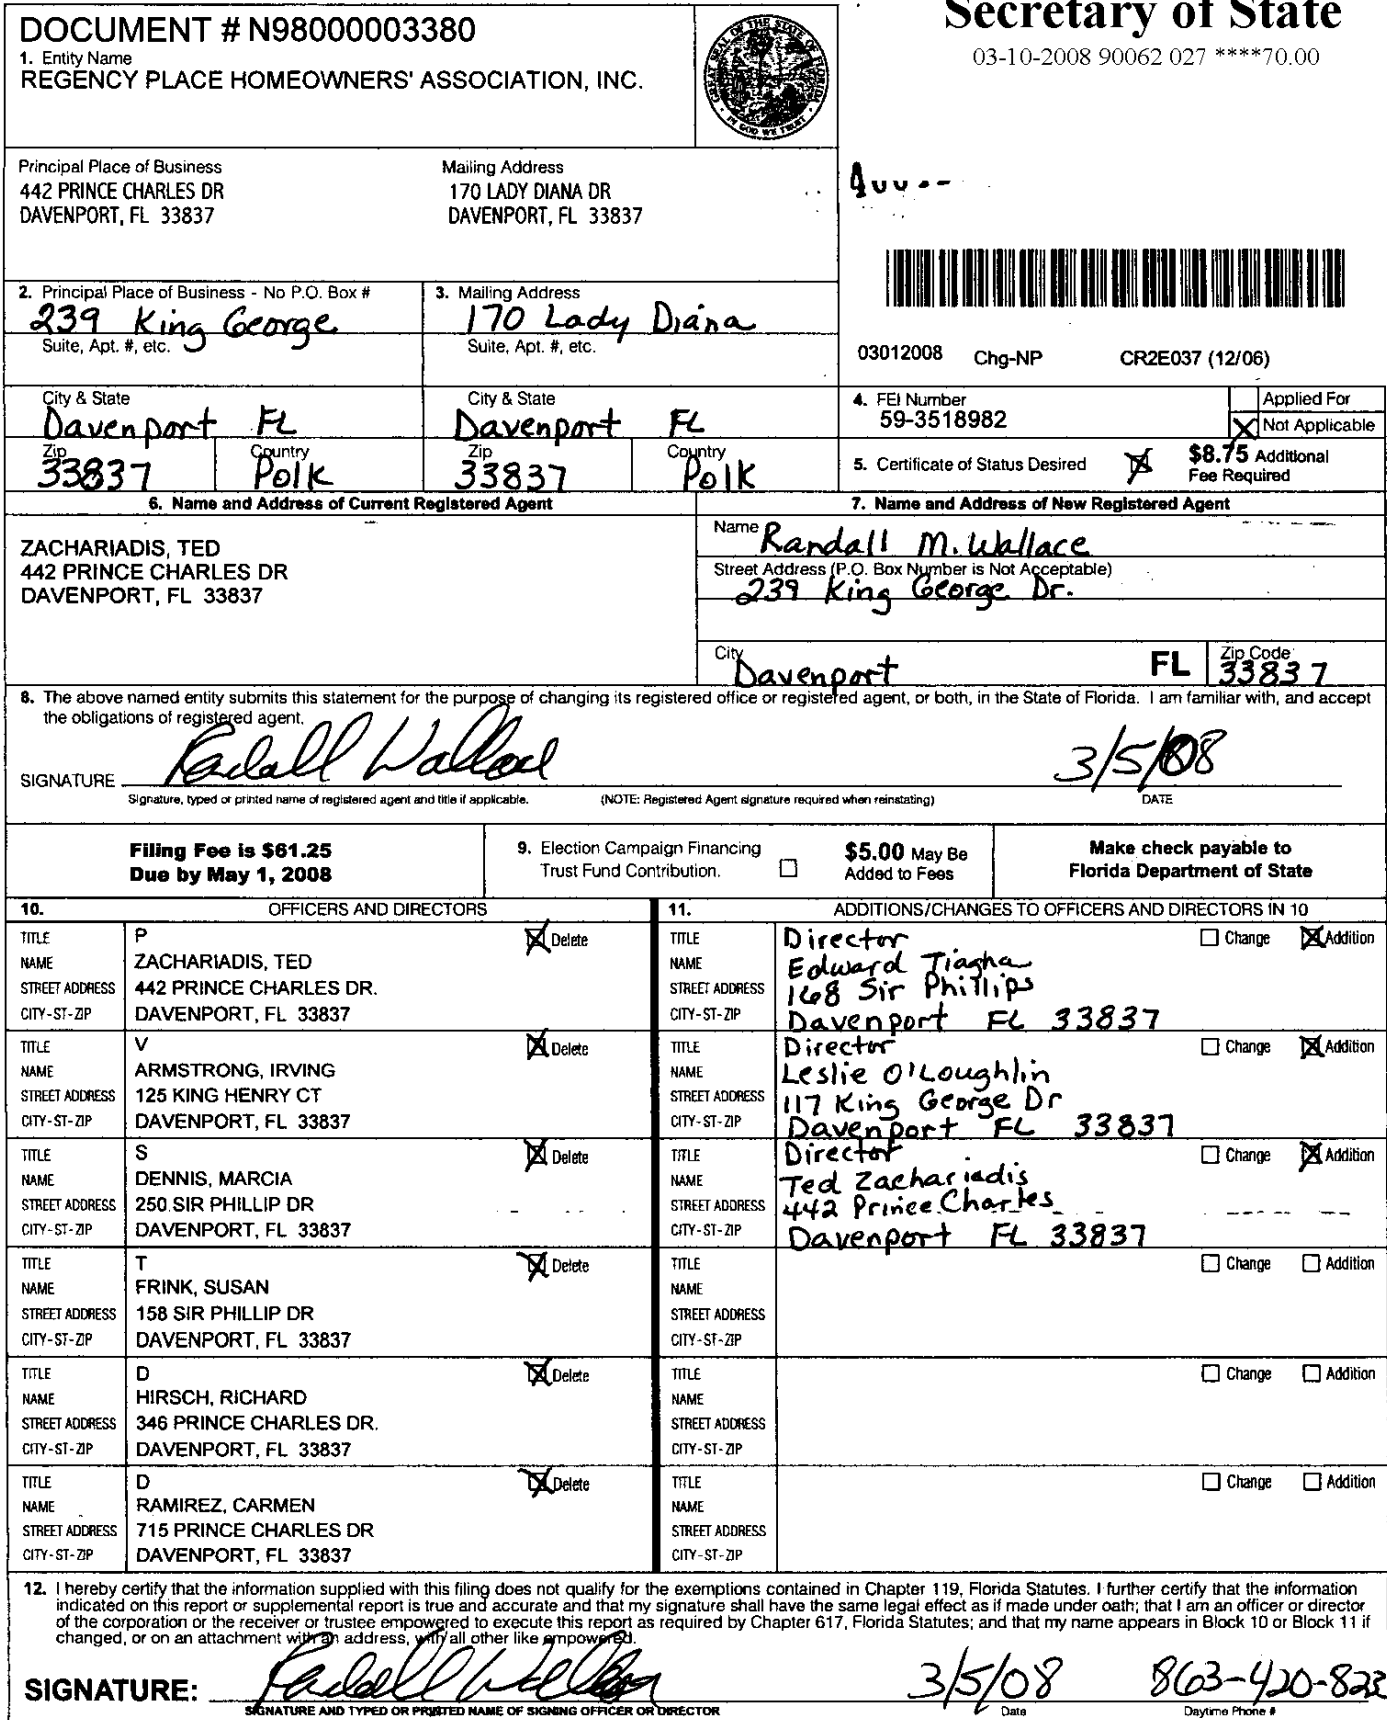 DOCUMENT # N98000003380
Secretary of State
03-10-2008 90062 027 ****70.00
1. Entity Name
REGENCY PLACE HOMEOWNERS' ASSOCIATION, INC.
GREAT SEAL OF THE STATE OF FLORIDA
IN GOD WE TRUST
Principal Place of Business
442 PRINCE CHARLES DR
DAVENPORT, FL 33837
Mailing Address
170 LADY DIANA DR
DAVENPORT, FL 33837
2. Principal Place of Business - No P.O. Box #
239 King George
Suite, Apt. #, etc.
3. Mailing Address
170 Lady Diana
Suite, Apt. #, etc.
03012008 Chg-NP CR2E037 (12/06)
City & State
Davenport FL
City & State
Davenport FL
Zip
33837
Country
Polk
Zip
33837
Country
Polk
4. FEI Number
59-3518982
Applied For
Not Applicable
5. Certificate of Status Desired
$8.75 Additional
Fee Required
6. Name and Address of Current Registered Agent
ZACHARIADIS, TED
442 PRINCE CHARLES DR
DAVENPORT, FL 33837
7. Name and Address of New Registered Agent
Name Randall M. Wallace
Street Address (P.O. Box Number is Not Acceptable)
239 King George Dr.
City Davenport FL Zip Code 33837
8. The above named entity submits this statement for the purpose of changing its registered office or registered agent, or both, in the State of Florida. I am familiar with, and accept
the obligations of registered agent.
SIGNATURE Randall Wallace 3/5/08
Signature, typed or printed name of registered agent and title if applicable. (NOTE: Registered Agent signature required when reinstating) DATE
Filing Fee is $61.25
Due by May 1, 2008
9. Election Campaign Financing
Trust Fund Contribution.
$5.00 May Be
Added to Fees
Make check payable to
Florida Department of State
10. OFFICERS AND DIRECTORS
11. ADDITIONS/CHANGES TO OFFICERS AND DIRECTORS IN 10
TITLE P Delete
NAME ZACHARIADIS, TED
STREET ADDRESS 442 PRINCE CHARLES DR.
CITY-ST-ZIP DAVENPORT, FL 33837
TITLE Director Change Addition
NAME Edward Tiagha
STREET ADDRESS 168 Sir Phillips
CITY-ST-ZIP Davenport FL 33837
TITLE V Delete
NAME ARMSTRONG, IRVING
STREET ADDRESS 125 KING HENRY CT
CITY-ST-ZIP DAVENPORT, FL 33837
TITLE Director Change Addition
NAME Leslie O'Loughlin
STREET ADDRESS 117 King George Dr
CITY-ST-ZIP Davenport FL 33837
TITLE S Delete
NAME DENNIS, MARCIA
STREET ADDRESS 250 SIR PHILLIP DR
CITY-ST-ZIP DAVENPORT, FL 33837
TITLE Director Change Addition
NAME Ted Zachariadis
STREET ADDRESS 442 Prince Charles
CITY-ST-ZIP Davenport FL 33837
TITLE T Delete
NAME FRINK, SUSAN
STREET ADDRESS 158 SIR PHILLIP DR
CITY-ST-ZIP DAVENPORT, FL 33837
TITLE Change Addition
NAME
STREET ADDRESS
CITY-ST-ZIP
TITLE D Delete
NAME HIRSCH, RICHARD
STREET ADDRESS 346 PRINCE CHARLES DR.
CITY-ST-ZIP DAVENPORT, FL 33837
TITLE Change Addition
NAME
STREET ADDRESS
CITY-ST-ZIP
TITLE D Delete
NAME RAMIREZ, CARMEN
STREET ADDRESS 715 PRINCE CHARLES DR
CITY-ST-ZIP DAVENPORT, FL 33837
TITLE Change Addition
NAME
STREET ADDRESS
CITY-ST-ZIP
12. I hereby certify that the information supplied with this filing does not qualify for the exemptions contained in Chapter 119, Florida Statutes. I further certify that the information
indicated on this report or supplemental report is true and accurate and that my signature shall have the same legal effect as if made under oath; that I am an officer or director
of the corporation or the receiver or trustee empowered to execute this report as required by Chapter 617, Florida Statutes; and that my name appears in Block 10 or Block 11 if
changed, or on an attachment with an address, with all other like empowered.
SIGNATURE: Randall Wallace 3/5/08 863-420-822
SIGNATURE AND TYPED OR PRINTED NAME OF SIGNING OFFICER OR DIRECTOR Date Daytime Phone #